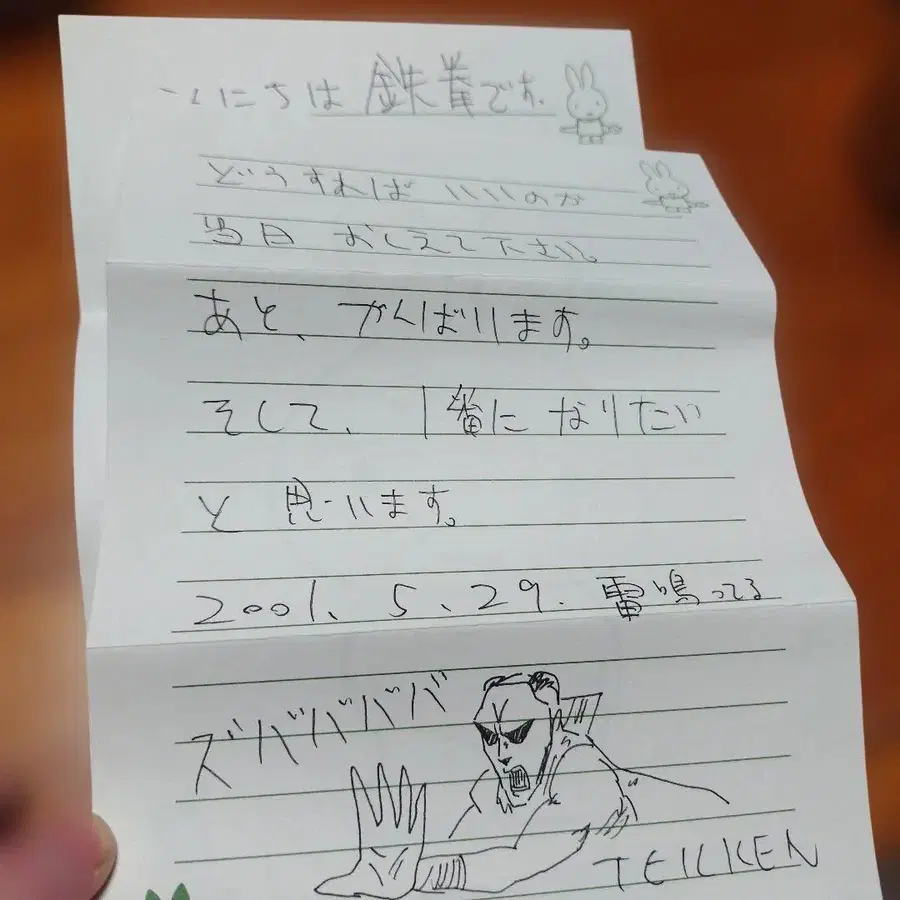 こんにちは 鉄拳です。
どうすればいいのか
当日 おしえて下さい。
あと、がんばります。
そして、1番になりたい
と 思います。
2001、5、29. 雷鳴ってる
ズバババババ
TEKKEN